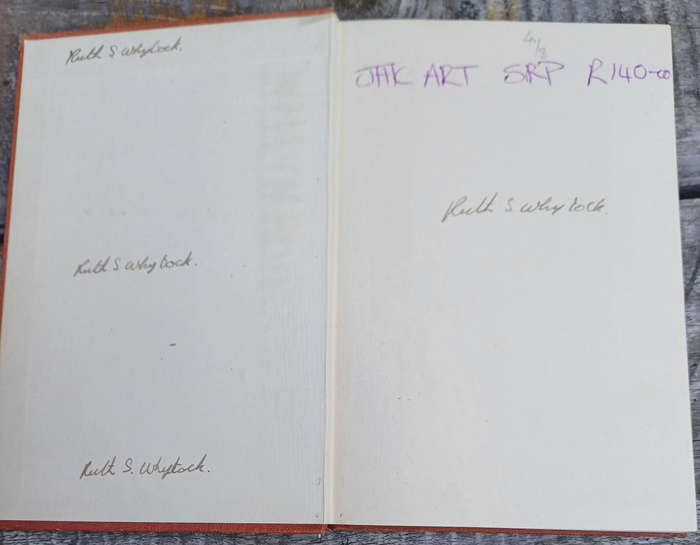 Ruth S Whytock.
Ruth S Whytock.
Ruth S. Whytock.
SRP R140-00
Ruth S Whytock.